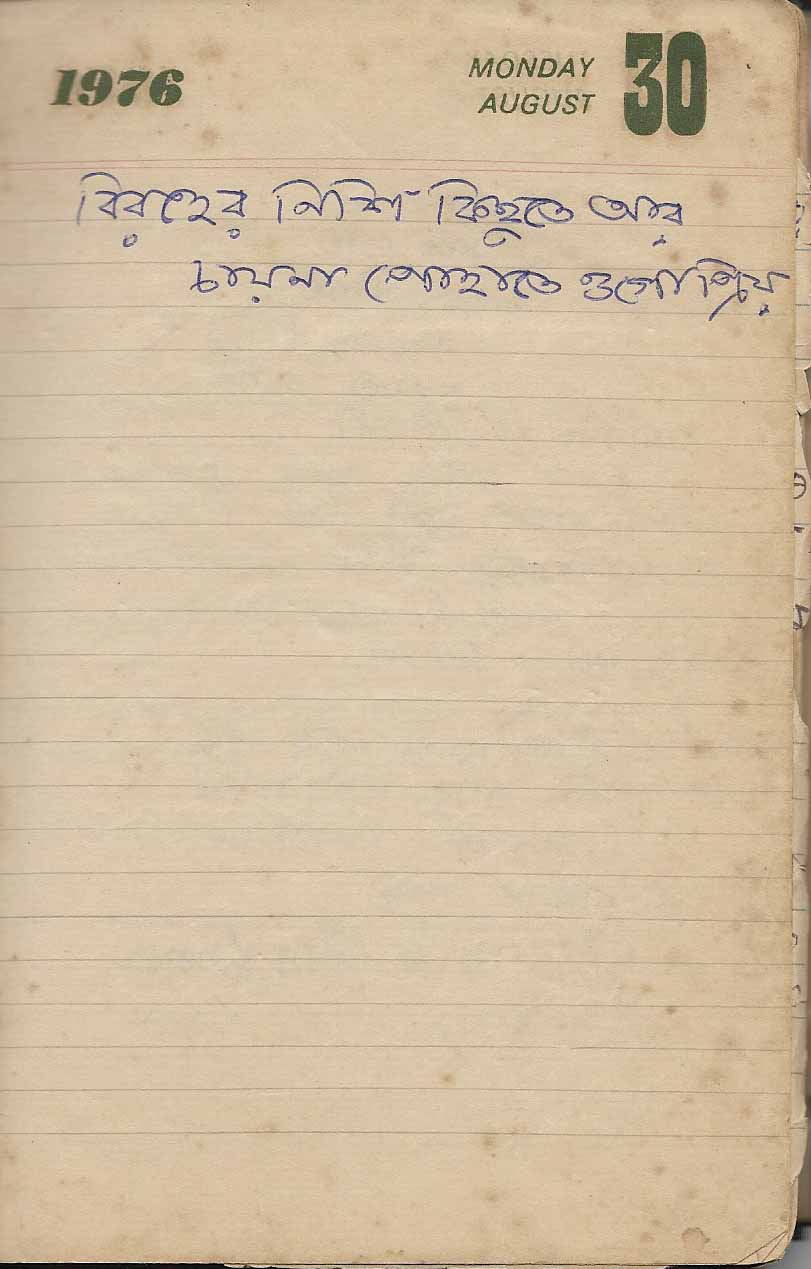 1976 MONDAY AUGUST 30
বিরহের নিশি কিছুতে আর
চায়না পোহাতে ওগো প্রিয়